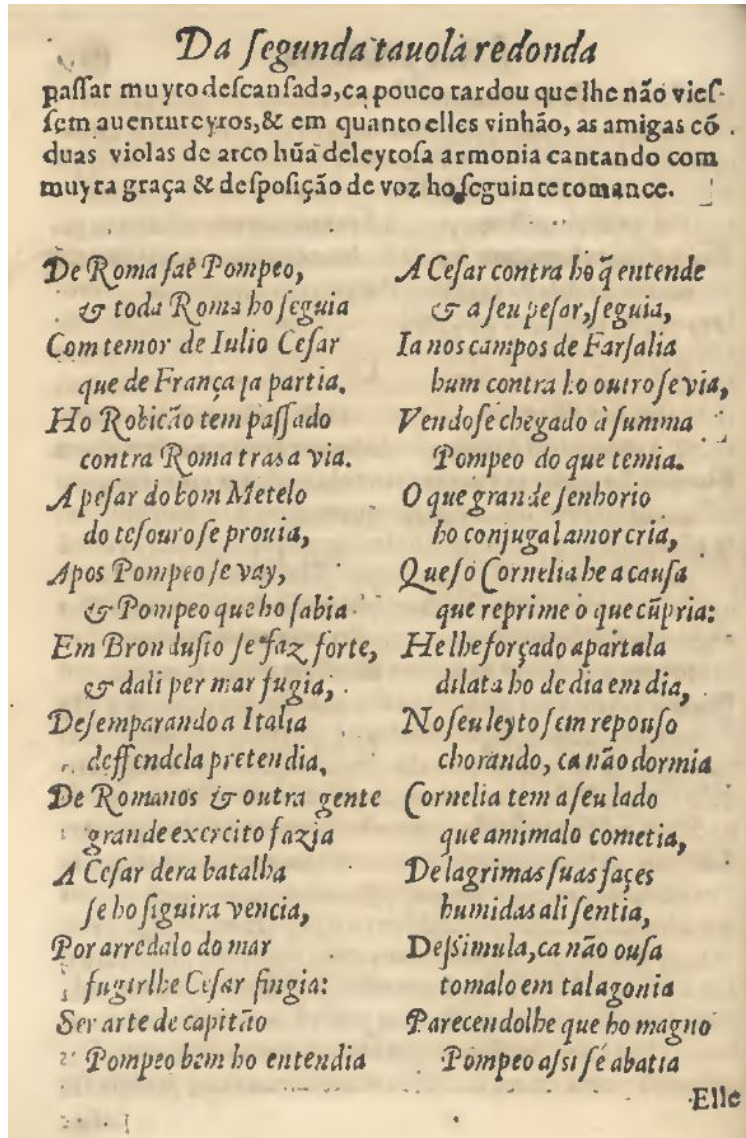 Da ſegunda tauola redonda
paſſar muyto deſcanſada, ca pouco tardou que lhe não vieſ-
ſem auentureyros, & em quanto elles vinhão, as amigas cõ
duas violas de arco hũa deleytoſa armonia cantando com
muyta graça & deſpoſição de voz ho ſeguinte romance.
De Roma ſae Pompeo,
& toda Roma ho ſeguia
Com temor de Iulio Ceſar
que de França ja partia,
Ho Robicão tem paſſado
contra Roma tras a via.
A peſar do bom Metelo
do teſouro ſe prouia,
Apos Pompeo ſe vay,
& Pompeo que ho ſabia
Em Bronduſio ſe faz forte,
& dali per mar fugia,
Deſemparando a Italia
deffendela pretendia,
De Romanos & outra gente
grande exercito fazia
A Ceſar dera batalha
ſe ho ſiguira vencia,
Por arredalo do mar
fugirlhe Ceſar fingia:
Ser arte de capitão
Pompeo bem ho entendia
A Ceſar contra ho q̃ entende
& a ſeu peſar, ſeguia,
Ia nos campos de Farſalia
hum contra ho outro ſe via,
Vendoſe chegado à ſumma
Pompeo do que temia.
O que grande ſenhorio
ho conjugal amor cria,
Que ſó Cornelia he a cauſa
que reprime o que cũpria:
He lhe forçado apartala
dilata ho de dia em dia,
No ſeu leyto ſem repouſo
chorando, ca não dormia
Cornelia tem a ſeu lado
que amimalo cometia,
De lagrimas ſuas façes
humidas ali ſentia,
Deſsimula, ca não ouſa
tomalo em tal agonia
Parecendolhe que ho magno
Pompeo aſsi ſe abatia
Elle